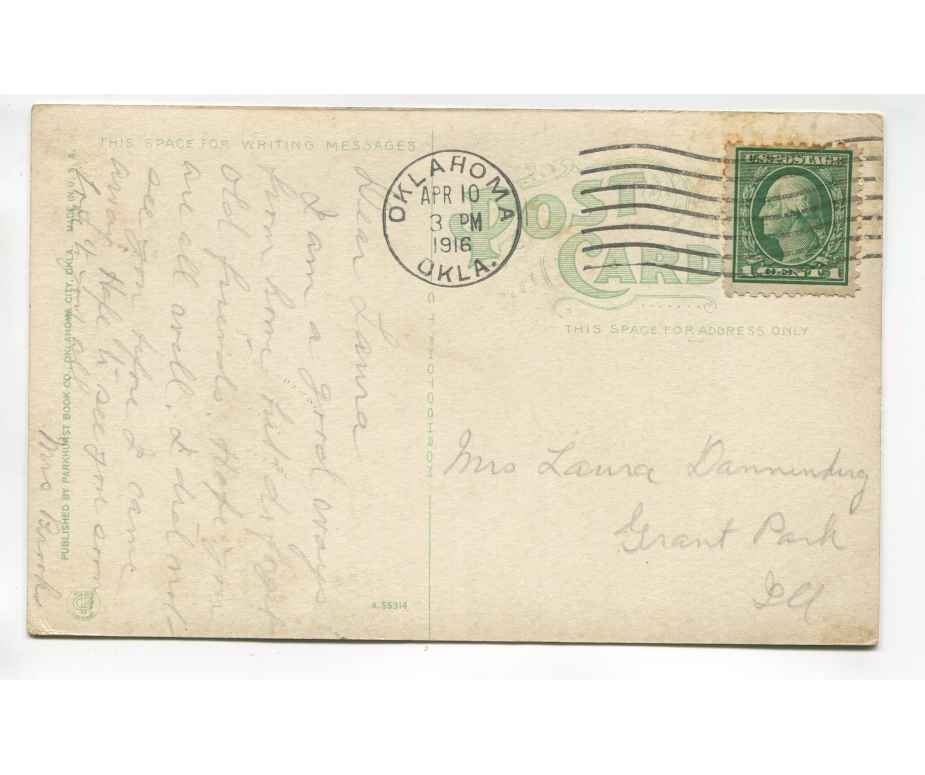 THIS SPACE FOR WRITING MESSAGES
Dear Laura
I am a good ways
from home but don't forget
old friends. Hope you
are all well. I did not
see you before I came
away Hope to see you some
Love to
Mrs
PUBLISHED BY PARKHURST BOOK CO., OKLAHOMA CITY, OKLA. MADE IN U.S.A.
C.T. PHOTOCHROM
A. 55314
OKLAHOMA
APR 10
3 PM
1916
OKLA.
POST
CARD
U.S. POSTAGE
1 CENT 1
THIS SPACE FOR ADDRESS ONLY
Mrs Laura Dannenberg
Grant Park
Ill